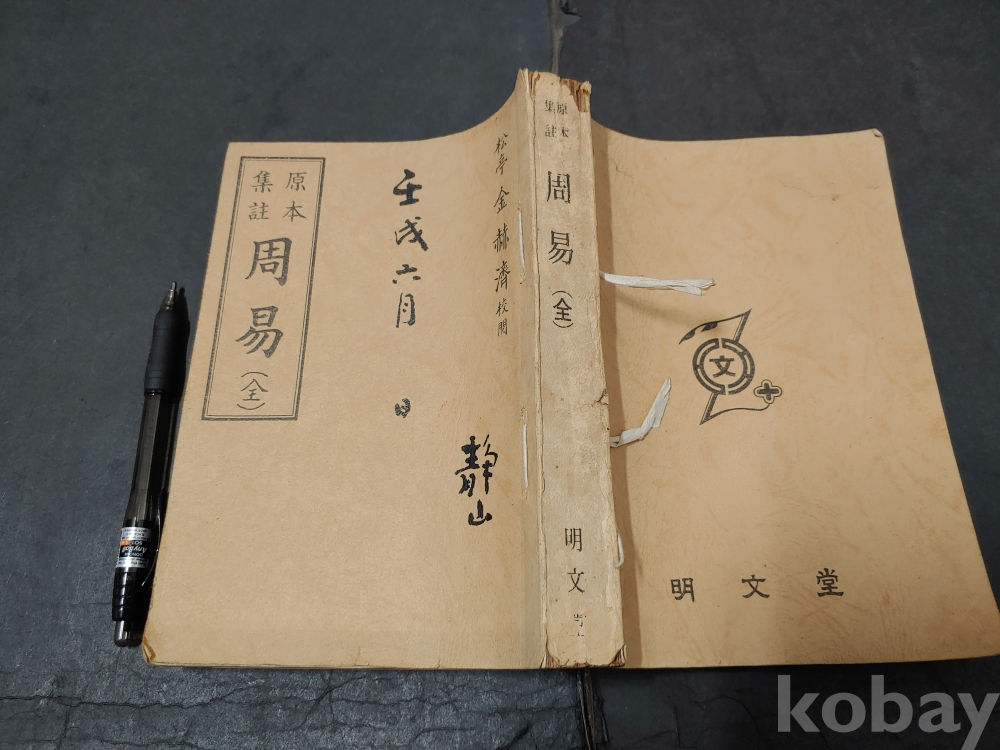 原本
集註
周易（全）
壬戌六月
日
靜山
松亭 金赫濟 校閱
原本
集註
周易（全）
明文堂
文
明文堂
Anyball
501
kobay